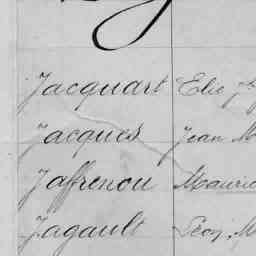 Jacquart Elie J.
Jacques Jean M
Jaffrenou Mauric
Jagault Léon, M